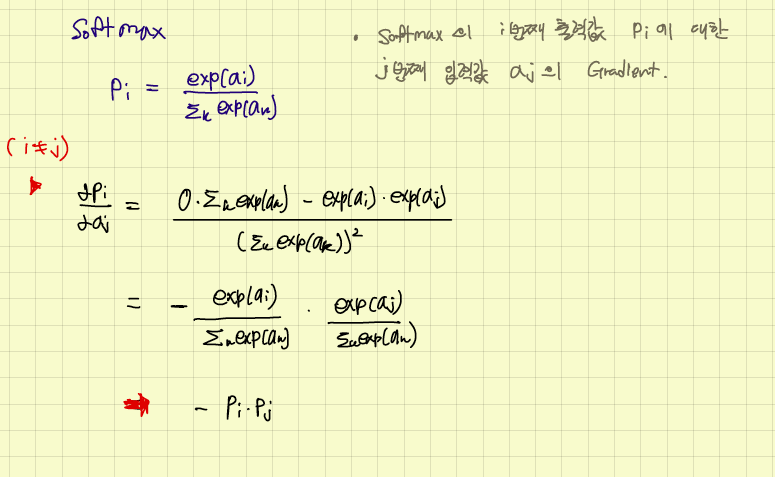 Softmax
Pi = exp(ai) / Σk exp(ak)
• Softmax의 i번째 출력값 Pi에 대한
j번째 입력값 aj의 Gradient.
(i≠j)
∂Pi/∂aj = (0·Σk exp(ak) - exp(ai)·exp(aj)) / (Σk exp(ak))²
= - exp(ai)/Σk exp(ak) · exp(aj)/Σk exp(ak)
➡ - Pi·Pj